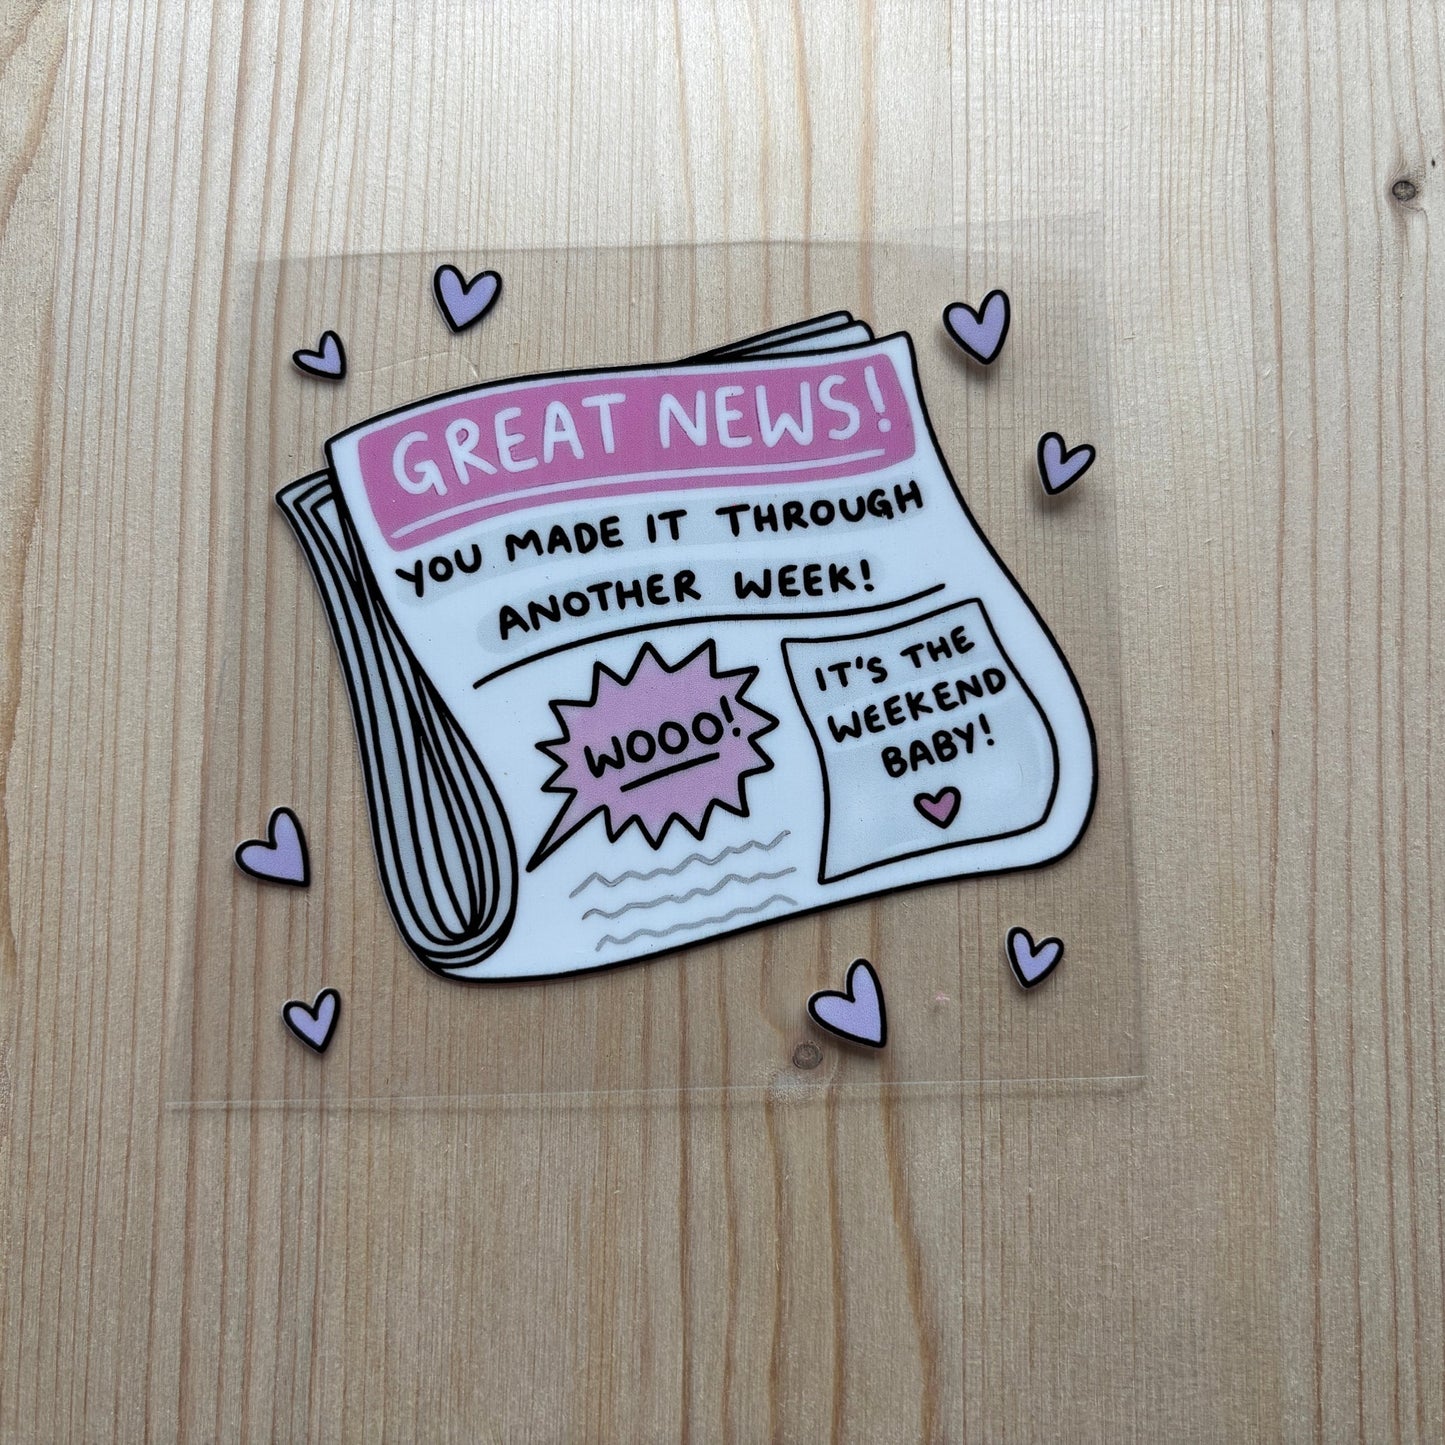 GREAT NEWS!
YOU MADE IT THROUGH
ANOTHER WEEK!
WOOO!
IT'S THE
WEEKEND
BABY!